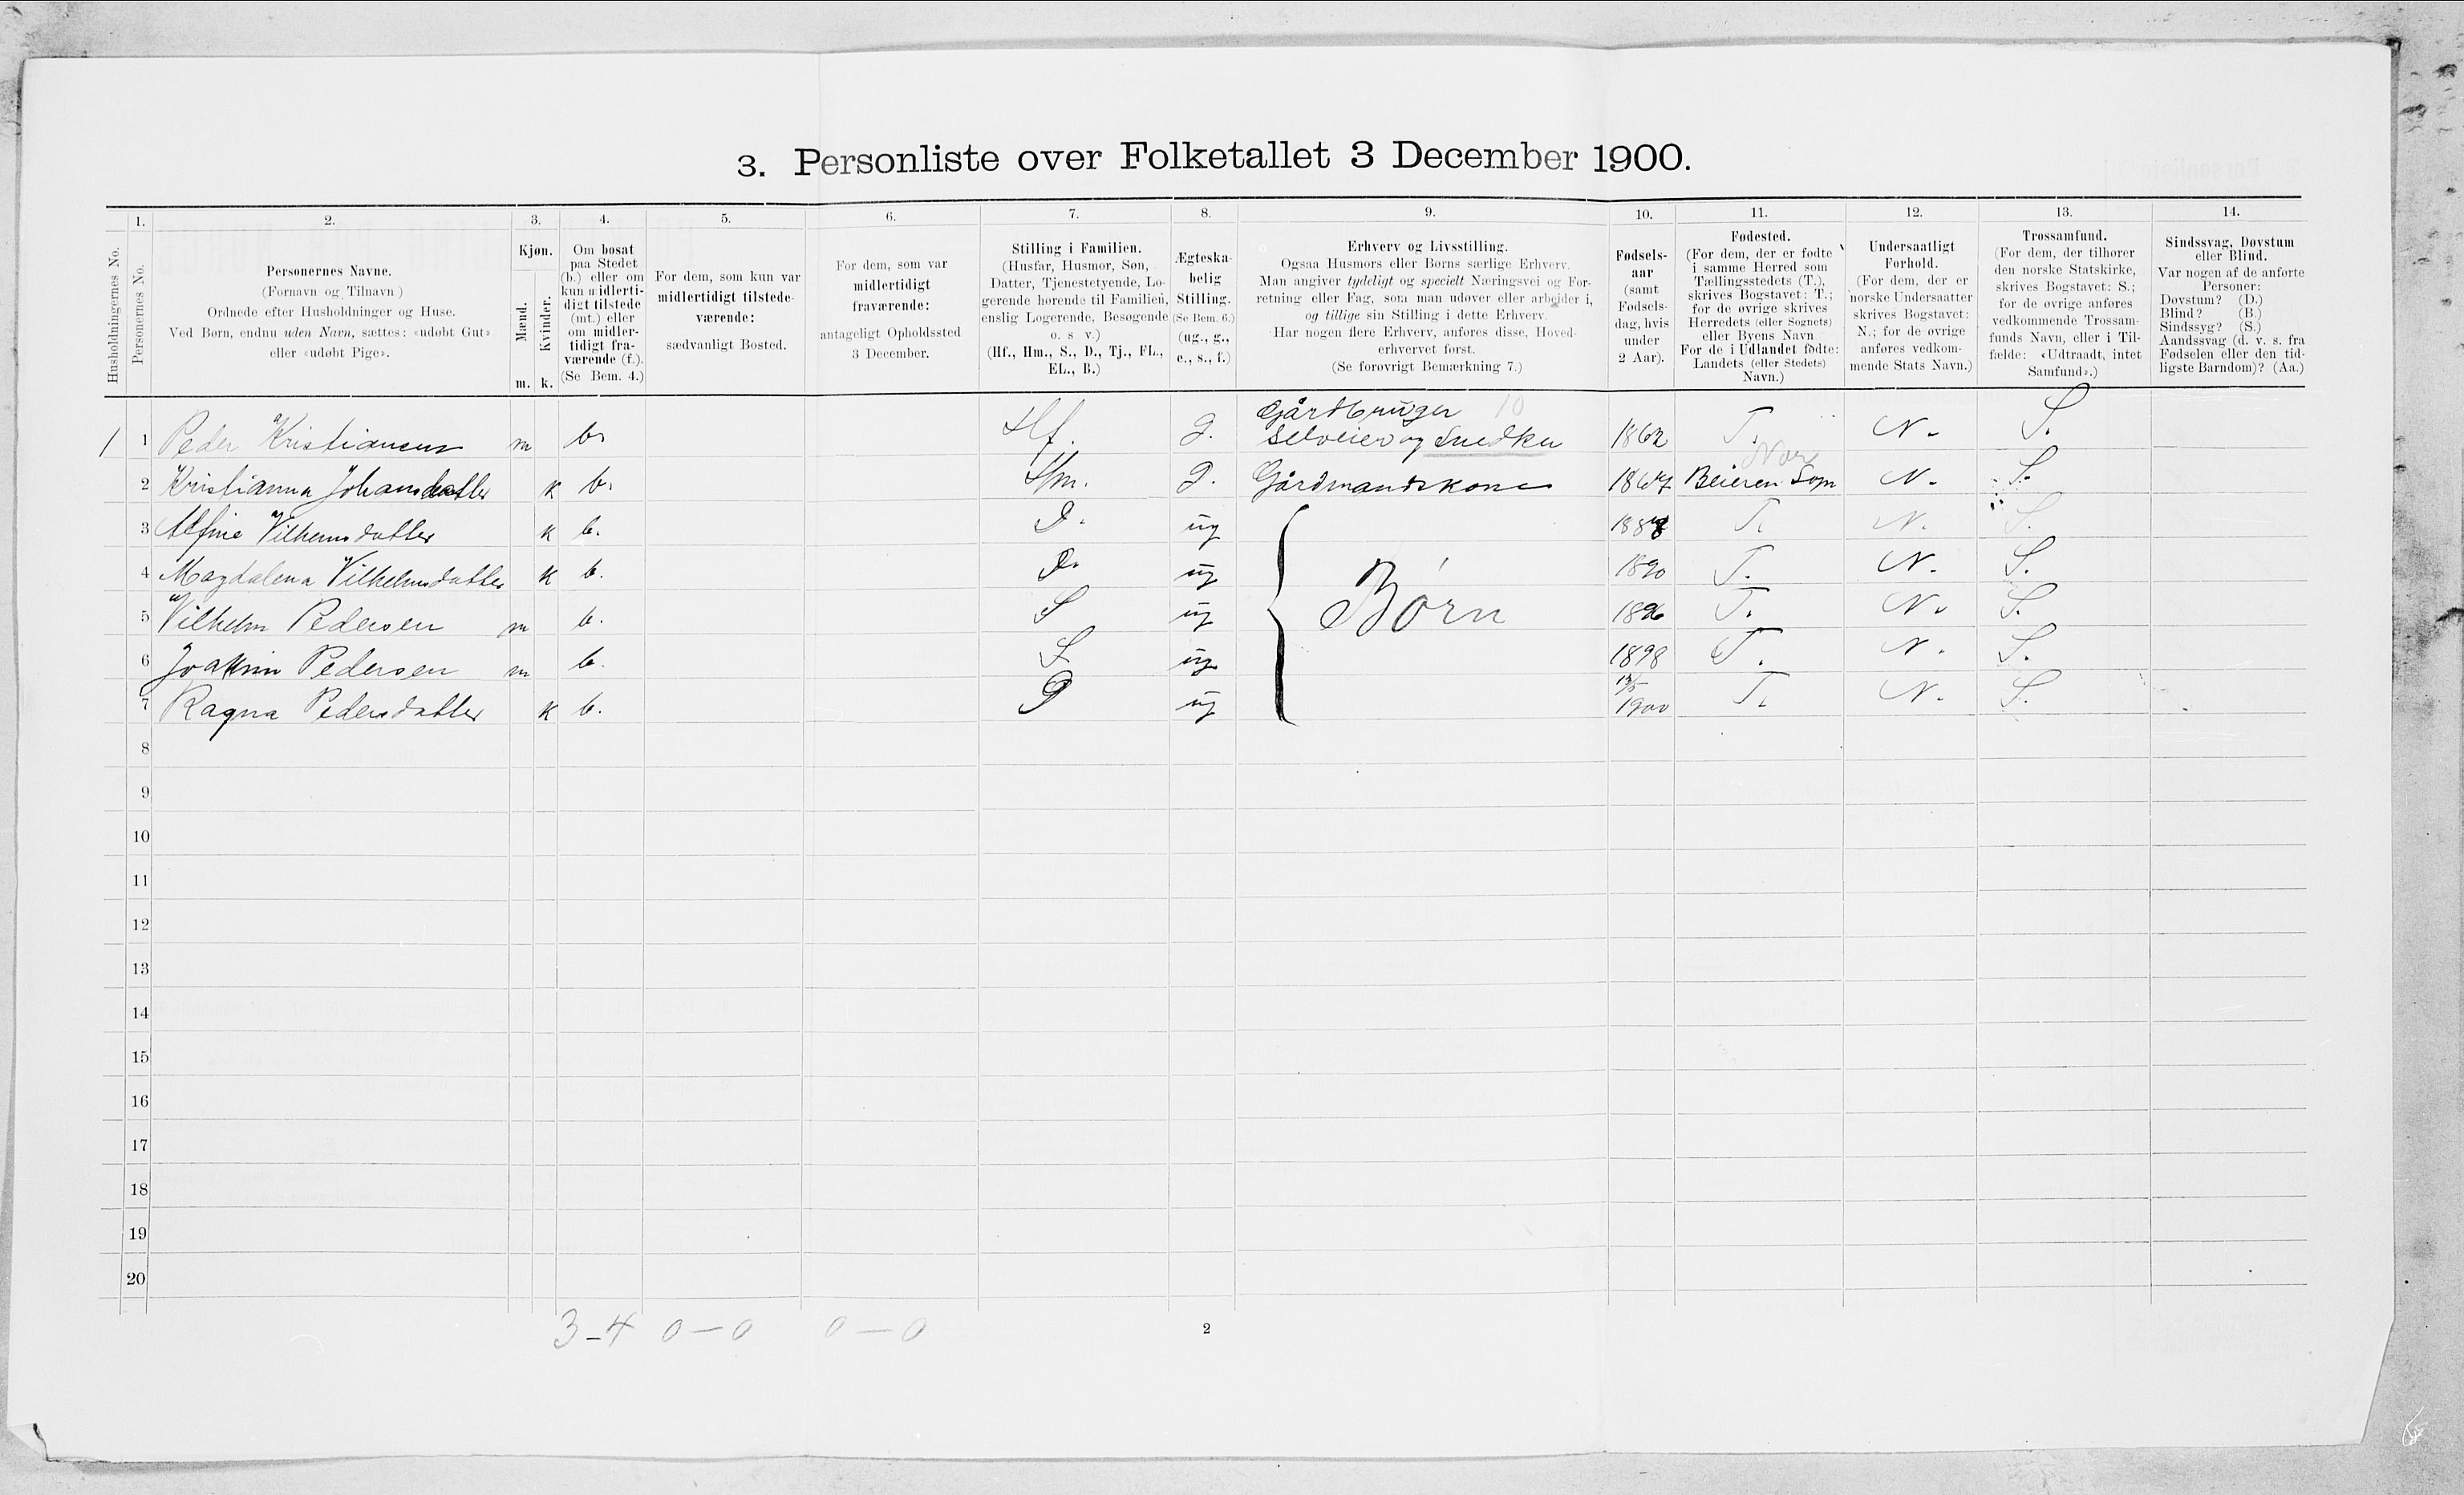 3. Personliste over Folketallet 3 December 1900.
1. 2. 3. 4. 5. 6. 7. 8. 9. 10. 11. 12. 13. 14.
Husholdningernes No.
Personernes No.
Personernes Navne.
(Fornavn og Tilnavn)
Ordnede efter Husholdninger og Huse.
Ved Børn, endnu uden Navn, sættes: «udøbt Gut»
eller «udøbt Pige».
Kjøn.
Mænd.
Kvinder.
m. k.
Om bosat
paa Stedet
(b.) eller om
kun midlerti-
digt tilstede
(mt.) eller
om midler-
tidigt fra-
værende (f.).
(Se Bem. 4.)
For dem, som kun var
midlertidigt tilstede-
værende:
sædvanligt Bosted.
For dem, som var
midlertidigt
fraværende:
antageligt Opholdssted
3 December.
Stilling i Familien.
(Husfar, Husmor, Søn,
Datter, Tjenestetyende, Lo-
gerende hørende til Familien,
enslig Logerende, Besøgende
o. s v.)
(Hf., Hm., S., D., Tj., FL.,
EL., B.)
Ægteska-
belig
Stilling.
(Se Bem. 6.)
(ug., g.,
e., s., f.)
Erhverv og Livsstilling.
Ogsaa Husmors eller Børns særlige Erhverv.
Man angiver tydeligt og specielt Næringsvei og For-
retning eller Fag, som man udøver eller arbejder i,
og tillige sin Stilling i dette Erhverv.
Har nogen flere Erhverv, anføres disse, Hoved-
erhvervet først.
(Se forøvrigt Bemærkning 7.)
Fødsels-
aar
(samt
Fødsels-
dag, hvis
under
2 Aar).
Fødested.
(For dem, der er fødte
i samme Herred som
Tællingsstedets (T.),
skrives Bogstavet: T.;
for de øvrige skrives
Herredets (eller Sognets)
eller Byens Navn.
For de i Udlandet fødte:
Landets (eller Stedets)
Navn.)
Undersaatligt
Forhold.
(For dem, der er
norske Undersaatter
skrives Bogstavet:
N.; for de øvrige
anføres vedkom-
mende Stats Navn.)
Trossamfund.
(For dem, der tilhører
den norske Statskirke,
skrives Bogstavet: S.;
for de øvrige anføres
vedkommende Trossam-
funds Navn, eller i Til-
fælde: «Udtraadt, intet
Samfund».)
Sindssvag, Døvstum
eller Blind.
Var nogen af de anførte
Personer:
Døvstum? (D.)
Blind? (B.)
Sindssyg? (S.)
Aandssvag (d. v. s. fra
Fødselen eller den tid-
ligste Barndom)? (Aa.)
Gårdbruger 10
1 1 Peder Kristiansen m b. Hf. g. Selveier og Snedker 1862 T. N. S.
Nore
2 Kristianna Johansdatter k b. Hm. g. Gårdmandskone 1867 Beieren Sogn N. S.
3 Alfine Vilhelmsdatter k b. D. ug 1888 T. N. S.
4 Magdalena Vilhelmsdatter k b. D. ug 1890 T. N. S.
Børn
5 Vilhelm Pedersen m b. S ug 1896 T. N. S.
6 Joakim Pedersen m b. S. ug 1898 T. N. S.
7 Ragna Pedersdatter k b. D ug 1900 T. N. S.
8
9
10
11
12
13
14
15
16
17
18
19
20
3-4 0-0 0-0
2